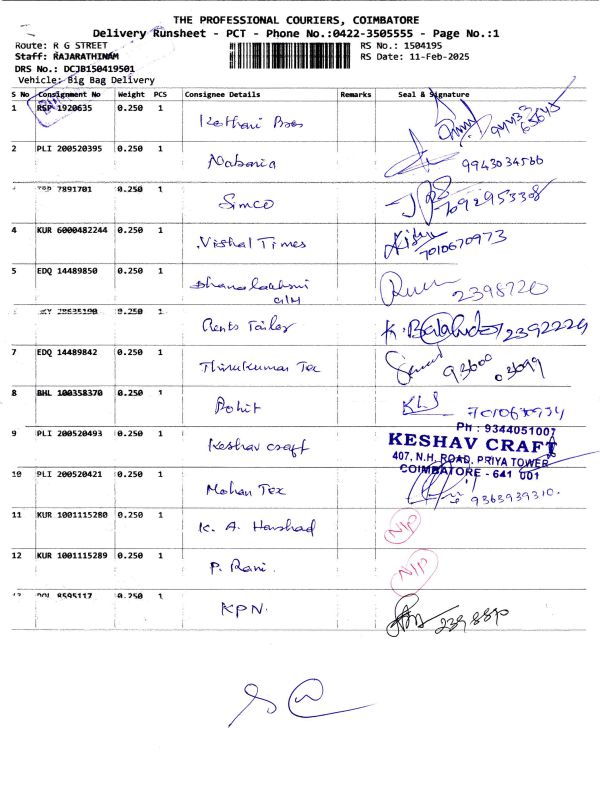 THE PROFESSIONAL COURIERS, COIMBATORE
Delivery Runsheet - PCT - Phone No.:0422-3505555 - Page No.:1
Route: R G STREET
RS No.: 1504195
Staff: RAJARATHINAM
RS Date: 11-Feb-2025
DRS No.: DCJB150419501
Vehicle: Big Bag Delivery
S No Consignment No Weight PCS Consignee Details Remarks Seal & Signature
1 RSP 1920635 0.250 1 Kothari Bros
2 PLI 200520395 0.250 1 Nabaria 9943034566
7891701 0.250 1 Simco 7092953308
4 KUR 6000482244 0.250 1 Vishal Times 7010670973
5 EDQ 14489850 0.250 1 Dhanalakshmi 2398720
0.250 1 Rents Tailor 2392224
7 EDQ 14489842 0.250 1 Thirukumar Tex 93600 03699
8 BHL 100358370 0.250 1 Rohit
9 PLI 200520493 0.250 1 Keshav craft
Ph : 9344051007
KESHAV CRAFT
407, N.H. ROAD, PRIYA TOWER
COIMBATORE - 641 001
10 PLI 200520421 0.250 1 Mohan Tex 9363939310.
11 KUR 1001115280 0.250 1 K. A. Harshad N/P
12 KUR 1001115289 0.250 1 P. Rani. N/P
8595117 0.250 1 KPN.